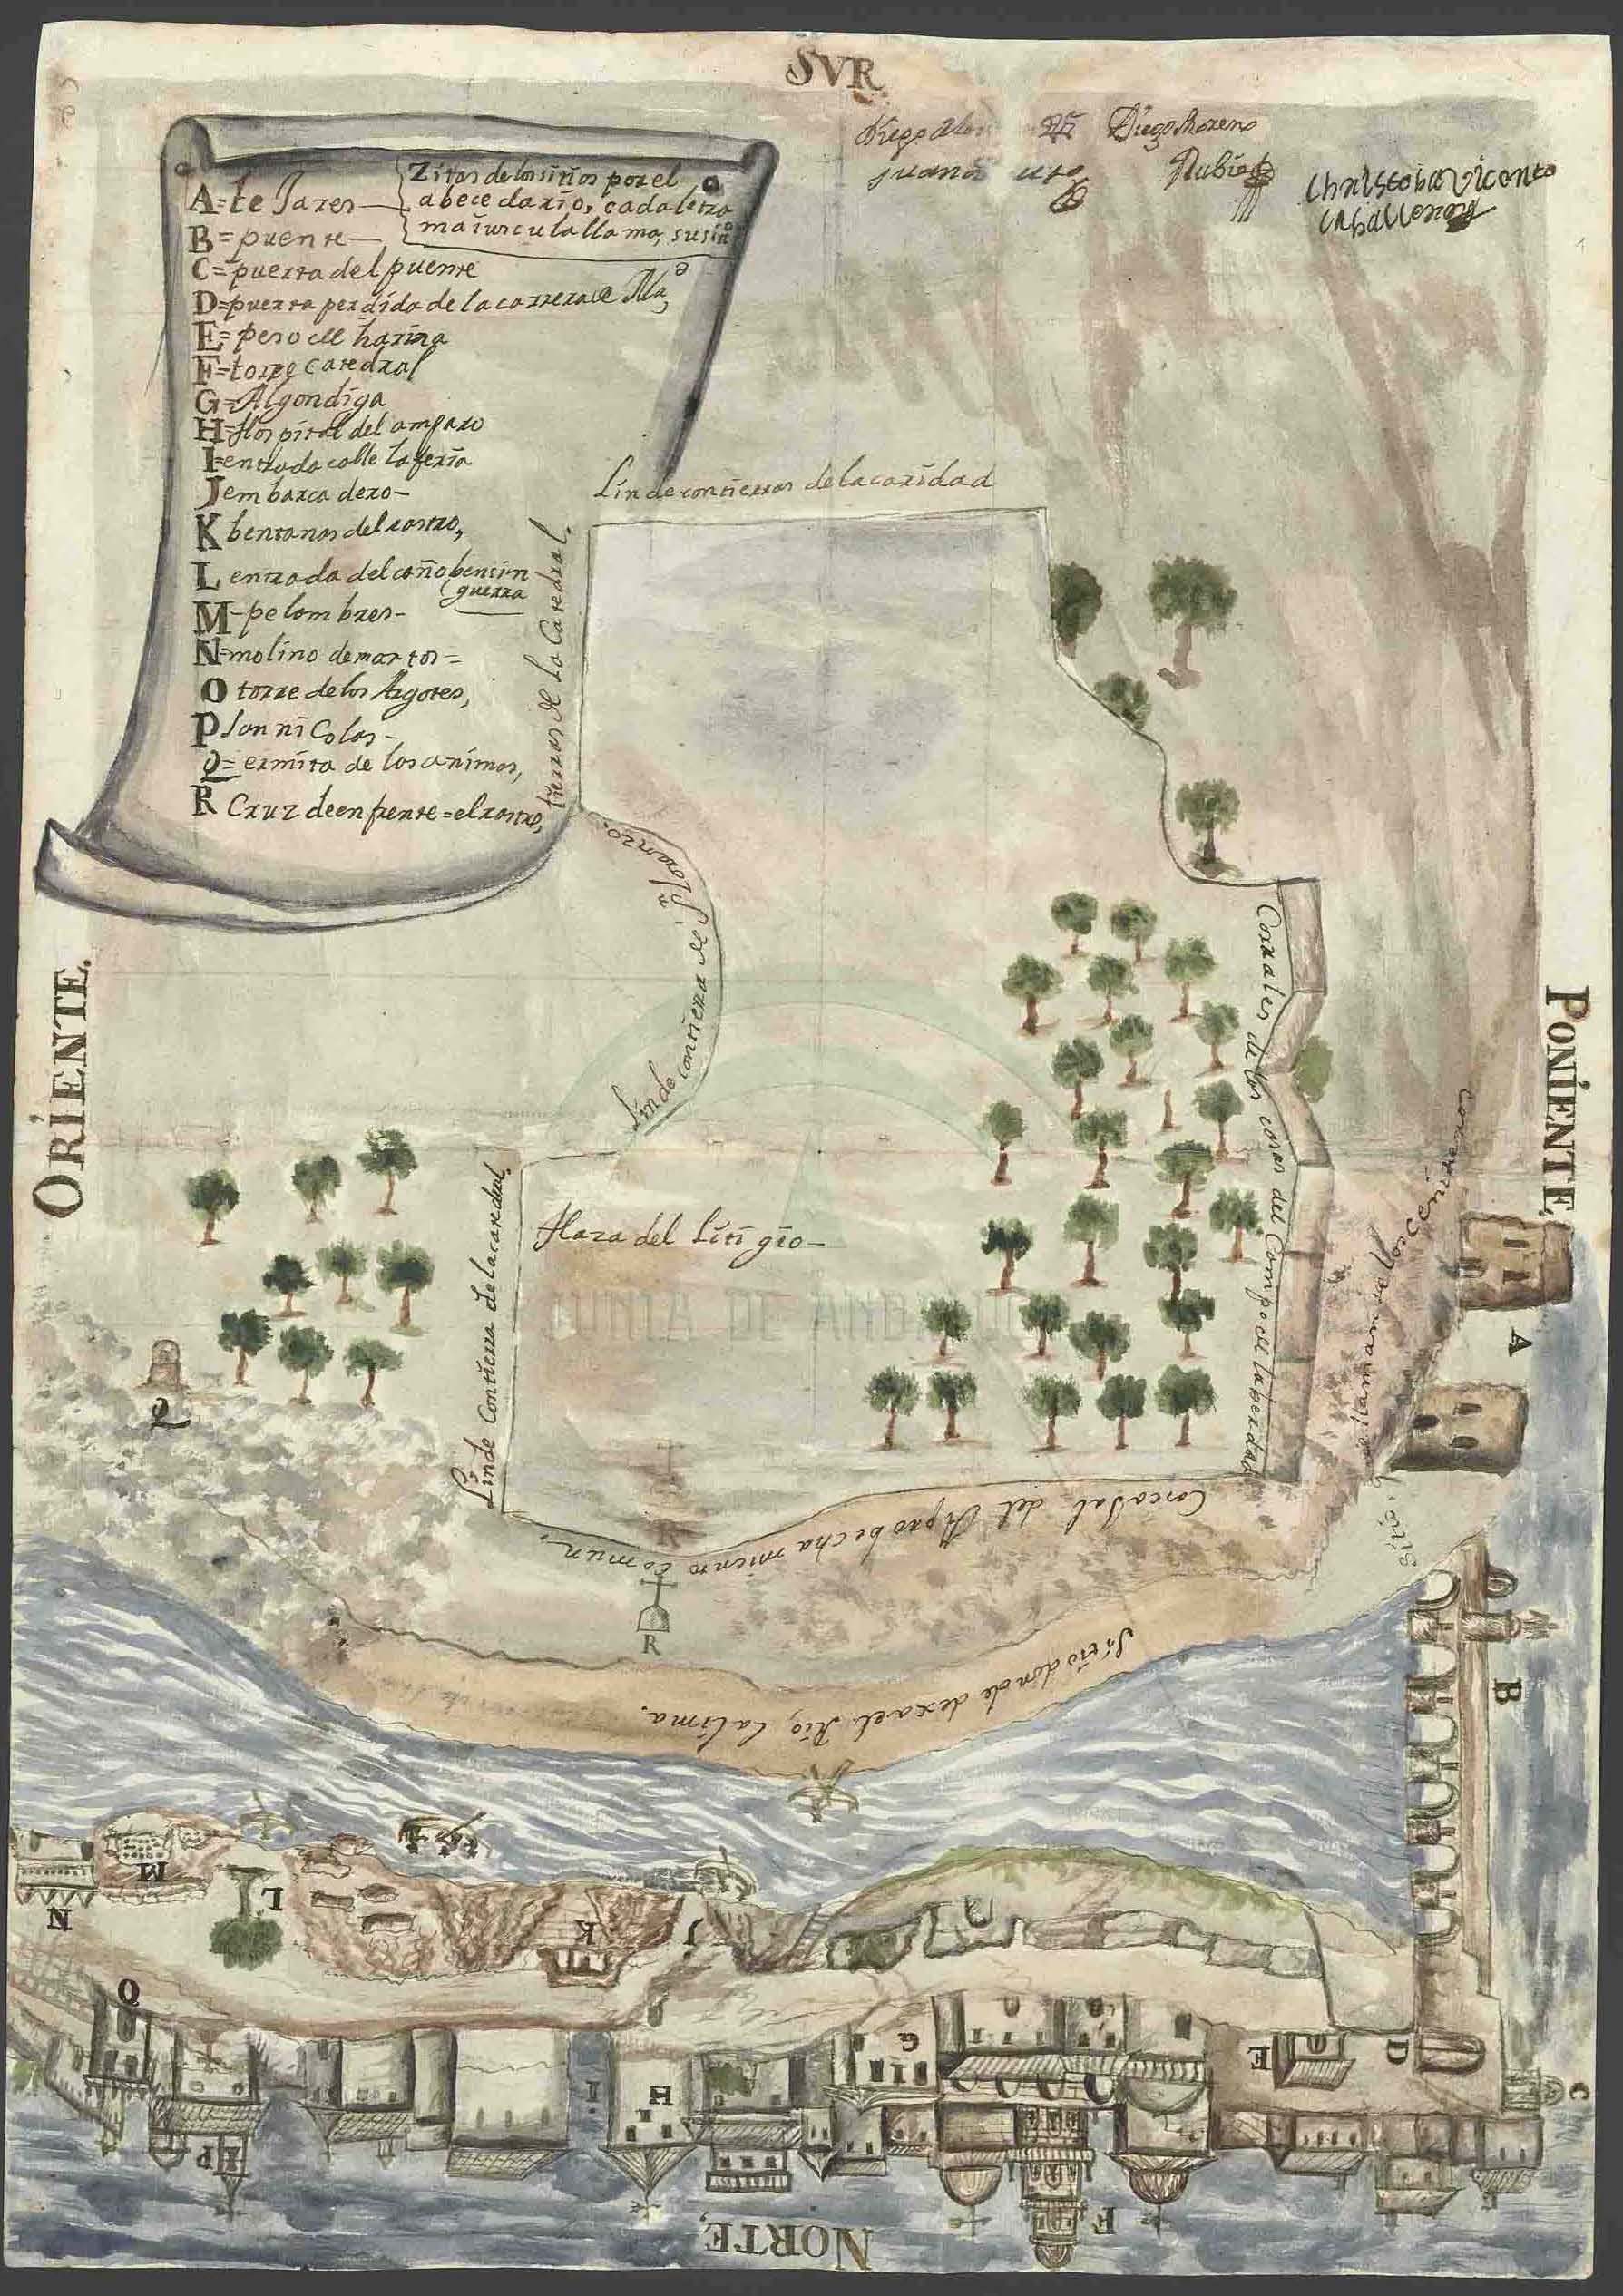 SVR
Diego Moreno
Rubio
Christobal Vicente
Caballero
Zitas de los sitios por el
abecedario, cada letra
maiuscula llama, su sitio
A=teJares
B=puente
C=puerta del puente
D=puerta perdida de la carrera
E=peso de harina
F=torre catedral
G=Algondiga
H=Hospital del amparo
I=entrada calle la feria
J embarcadero-
K bentanas del rastro,
L entrada del caño bensin
guerra
M-pelombres-
N=molino de martos=
O torre de los Argotes,
P san niColas-
Q=ermita de los animas,
R Cruz de enfrente=el rastro,
Linde con tierras de la caridad
tierras de la Catedral.
Linde con tierra de
Corrales de las casas del Campo de la berdad
ORIENTE.
PONIENTE,
Linde Con tierra de la catedral,
Haza del Litigio-
Sitio, q llaman de los
Q
A
CascaJal del Aprobechamiento comun.
R
Sitio donde dexa el Rio, la lima.
B
M
L
N
K
J
O
G
D
E
I
H
C
P
F
NORTE,
JUNTA DE ANDALUCIA